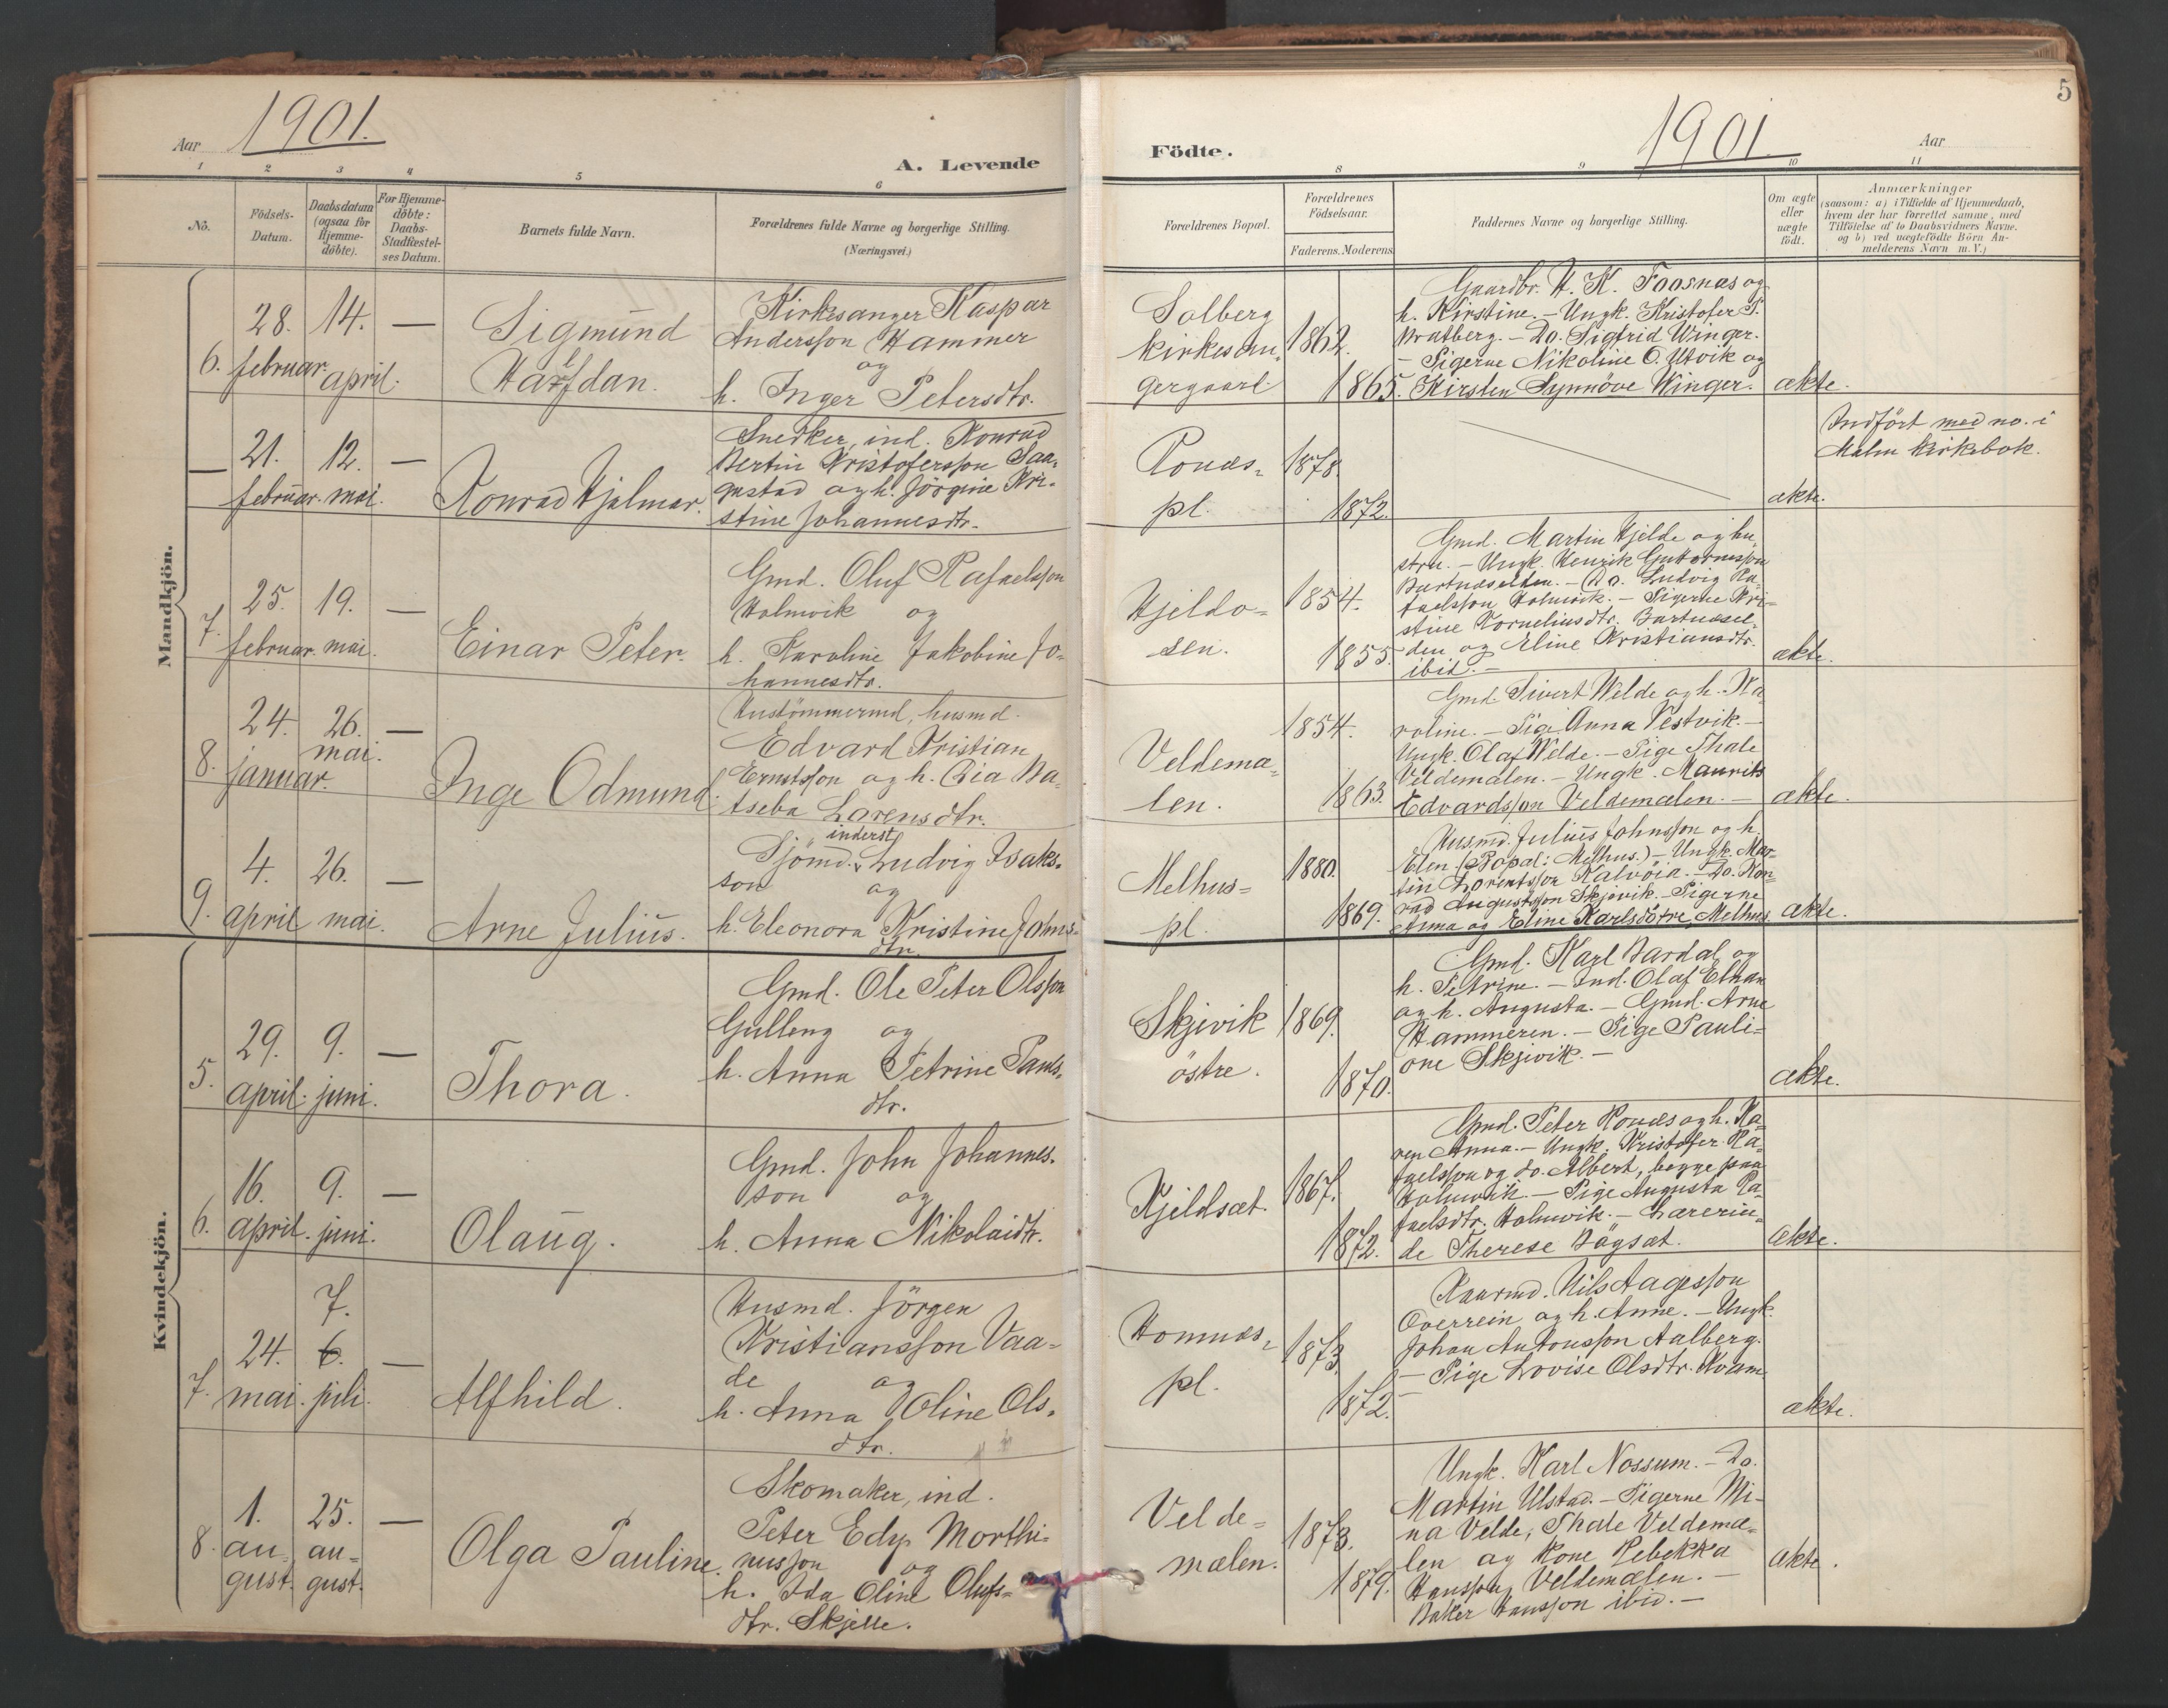 5
Aar 1901.
A. Levende
Födte.
1901.
Aar
1 2 3 4 5 6 8 9 10 11
No.
Födsels-
Datum.
Daabsdatum
(ogsaa för
Hjemme-
döbte).
For Hjemme-
döbte:
Daabs-
Stadfæstel-
ses Datum.
Barnets fulde Navn.
Forældrenes fulde Navne og borgerlige Stilling.
(Næringsvei.)
Forældrenes Bopæl.
Forældrenes
Födselsaar.
Faderens. Moderens.
Faddernes Navne og borgerlige Stilling.
Om ægte
eller
uægte
födt.
Anmærkninger
(saasom: a) i Tilfælde af Hjemmedaab,
hvem der har forrettet samme, med
Tilföielse af to Daabsvidners Navne.
og b) ved uægtefödte Börn An-
melderens Navn m. V.)
Mandkjön.
6.
28.
februar.
14.
april.
—
Sigmund
Halfdan.
Kirkesanger Kaspar
Andersson Hammer
og
h. Inger Petersdtr.
Solberg
kirkesan-
gergaard.
1862.
1865.
Gaardbr. H. K. Foosnæs og
h. Kirstine. - Ungk. Kristofer S.
Bratberg. - Do. Sigfrid Winger.
- Pigerne Nikoline O. Utvik og
Kirsten Synnöve Winger.
ækte.
—
21.
februar.
12.
mai.
—
Konrad Hjalmar.
Snedker, ind. Konrad
Bertin Kristofersson Saa-
gustad og h. Jörgine Kri-
stine Johannesdtr.
Ronæs-
pl.
1878.
1872.
ækte.
Indfört med no. i
Malm kirkebok.
7.
25.
februar.
19.
mai.
—
Einar Peter.
Gmd. Oluf Rafaelsson
Holmvik og
h. Karoline Jakobine Jo-
hannesdtr.
Hjeldo-
sen.
1854.
1855.
Gmd. Martin Hjelde og hu-
stru. - Ungk. Henrik Guttormsson
Bartnæselden. - Do. Ludvig Ra-
faelsson Holmvik. - Pigerne Kri-
stine Korneliusdtr. Bartnæsel-
den og Eline Kristiansdtr.
ibid. -
ækte.
8.
24.
januar.
26.
mai.
—
Inge Odmund.
Hustömmermd, husmd.
Edvard Kristian
Ernstsson og h. Pia Ba-
tseba Lorensdtr.
Veldemæ-
len.
1854.
1863.
Gmd. Sivert Welde og h. Ka-
roline. - Pige Anna Vestvik. -
Ungk. Olaf Welde. - Pige Thale
Veldemælen. - Ungk. Maurits
Edvardsson Veldemælen. -
ækte.
9.
4.
april
26.
mai.
—
Arne Julius.
inderst,
Sjömd. Ludvig Isaks-
son og
h. Eleonora Kristine Johns-
dtr.
Melhus-
pl.
1880.
1869.
Husmd. Julius Johnsson og h.
Elen (Bopæl: Melhus.) - Ungk. Mar-
tin Lorentsson Kalvöia. - Do. Kon-
rad Augustsson Skjevik. - Pigerne
Anna og Eline Karlsdötre, Melhus.
ækte.
Kvindekjön.
5.
29.
april.
9.
juni.
—
Thora.
Gmd. Ole Peter Olsson
Gulleng og
h. Anna Petrine Pauls-
dtr.
Skjevik
östre.
1869.
1870.
Gmd. Karl Bardal og
h. Petrine. - Ind. Olaf Elnan
og h. Augusta. - Gmd. Arne
Hammeren. - Pige Pauli-
one Skjevik. -
ækte.
6.
16.
april.
9.
juni.
—
Olaug.
Gmd. John Johannes-
son og
h. Anna Nikolaidtr.
Kjeldsæt.
1867.
1872.
Gmd. Peter Ronæs og h. Ka-
ren Anna. - Ungk. Kristofer Ra-
faelsson og do. Albert, begge paa
Holmvik. - Pige Augusta Ra-
faelsdtr. Holmvik. - Lærerin-
de Therese Bøgsæt.
ækte.
7.
24.
mai.
7.
6.
juli.
—
Alfhild.
Husmd. Jörgen
Kristiansson Vaa-
de og
h. Anna Oline Ols-
dtr.
Homnæs-
pl.
1873.
1872.
Kaarmd. Nils Aagesson
Overrein og h. Anne. - Ungk.
Johan Antonsson Aalberg.
- Pige Lovise Olsdtr. Kvam
-
ækte.
8.
1.
au-
gust.
25.
au-
gust.
—
Olga Pauline.
Skomaker, ind.
Peter Edv. Morthi-
nusson og
h. Ida Oline Olufs-
dtr. Skjelle.
Velde-
mælen.
1873.
1879.
Ungk. Karl Nossum. - Do.
Martin Ulstad. - Pigerne Mi-
na Velde, Thale Veldemæ-
len og Kone Rebekka
Hansson, Veldemælen. -
Baker Hansson ibid. -
ækte.